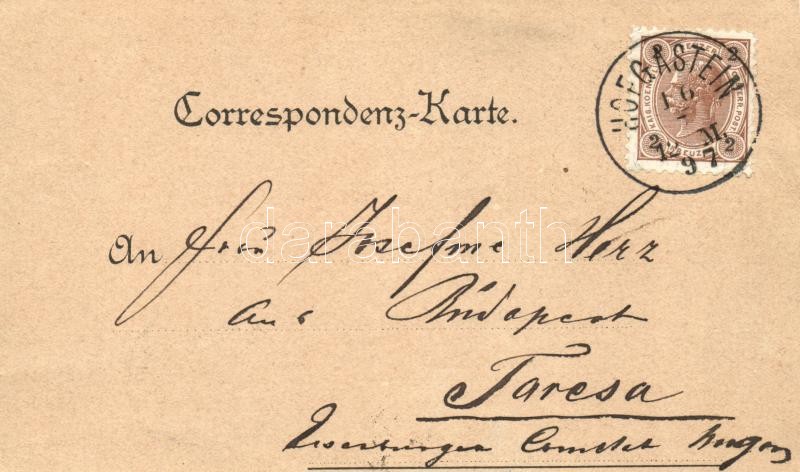 Correspondenz-Karte.
HOFGASTEIN
97
2 2
2 2
KAIS.KOEN. OESTERR. POST.
KREUZER
An Frau Josefine Herz
aus Budapest
darabanth
Tarcsa
Eisenburger Comitat Ungarn